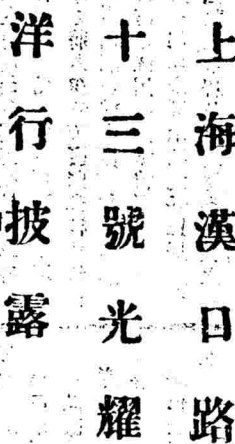 上海漢口路
十三號光耀
洋行披露